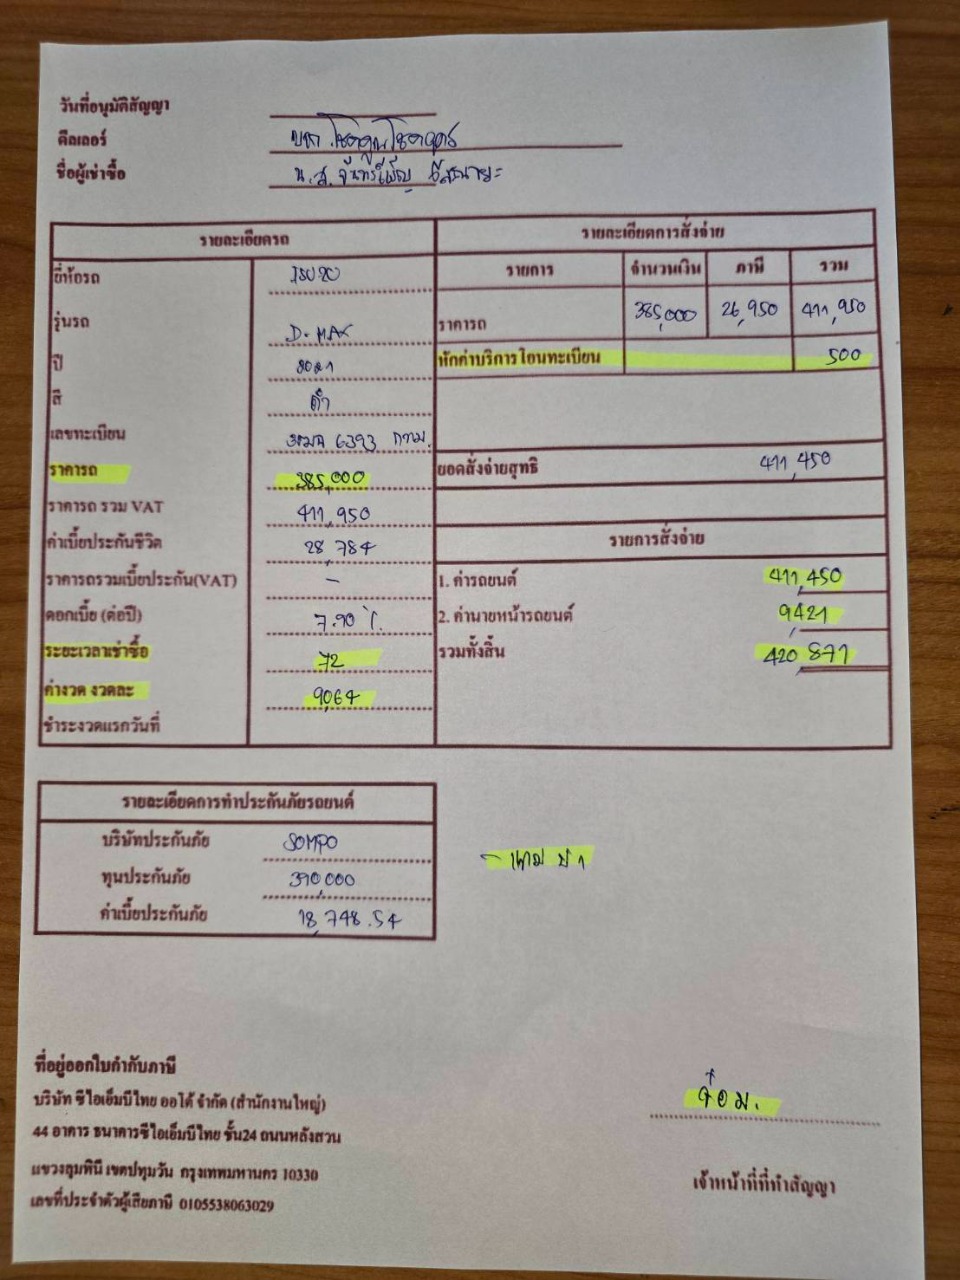 วันที่อนุมัติสัญญา
ดีลเลอร์ บจก. โชคคูณโชค
ชื่อผู้เช่าซื้อ น.ส. จันทร์เพ็ญ
รายละเอียดรถ
ยี่ห้อรถ ISUZU
รุ่นรถ D-MAX
ปี 2021
สี ดำ
เลขทะเบียน 6393 กทม.
ราคารถ 385,000
ราคารถ รวม VAT 411,950
ค่าเบี้ยประกันชีวิต 28,784
ราคารถรวมเบี้ยประกัน(VAT) -
ดอกเบี้ย (ต่อปี) 7.90 %
ระยะเวลาเช่าซื้อ 72
ค่างวด งวดละ 9,064
ชำระงวดแรกวันที่
รายละเอียดการสั่งจ่าย
รายการ จำนวนเงิน ภาษี รวม
ราคารถ 385,000 26,950 411,950
หักค่าบริการโอนทะเบียน 500
ยอดสั่งจ่ายสุทธิ 411,450
รายการสั่งจ่าย
1. ค่ารถยนต์ 411,450
2. ค่านายหน้ารถยนต์ 9,421
รวมทั้งสิ้น 420,871
รายละเอียดการทำประกันภัยรถยนต์
บริษัทประกันภัย SOMPO
ทุนประกันภัย 390,000
ค่าเบี้ยประกันภัย 18,748.54
ที่อยู่ออกใบกำกับภาษี
บริษัท ซีไอเอ็มบีไทย ออโต้ จำกัด (สำนักงานใหญ่)
44 อาคาร ธนาคารซีไอเอ็มบีไทย ชั้น24 ถนนหลังสวน
แขวงลุมพินี เขตปทุมวัน กรุงเทพมหานคร 10330
เลขที่ประจำตัวผู้เสียภาษี 0105538063029
จ๋อม.
เจ้าหน้าที่ที่ทำสัญญา